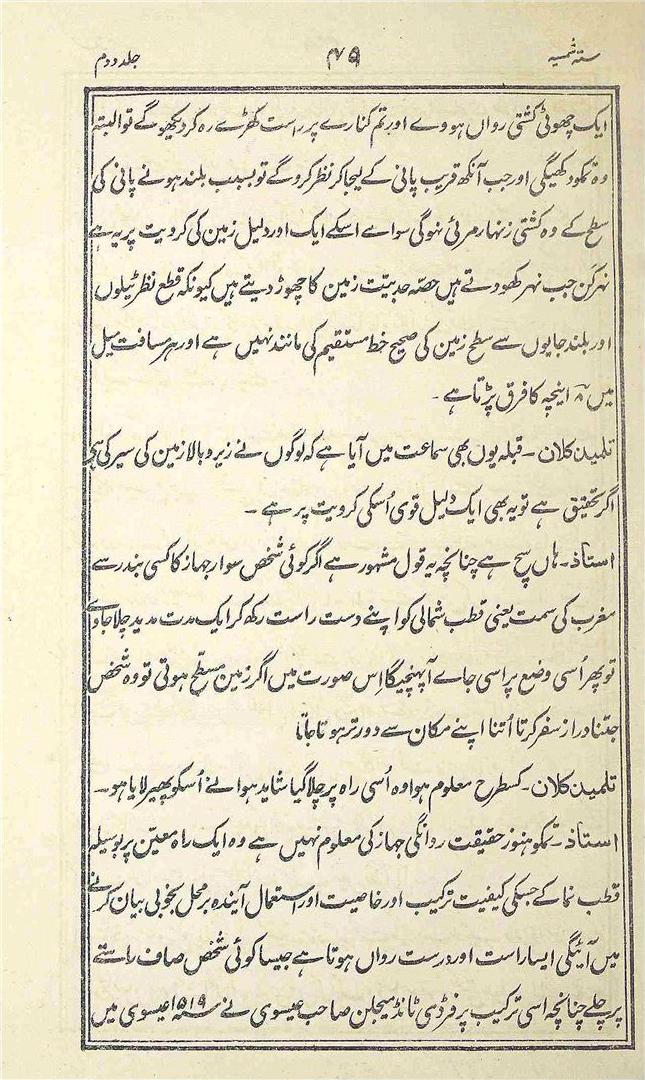 ستہ شمسیہ ۴۷۵ جلد دوم
ایک چھوٹی کشتی رواں ہووے اور تم کنارے پر راست کھڑے رہ کر دیکھو گے تو البتہ
وہ تمکو دکھیگی اور جب آنکھ قریب پانی کے لیجا کر نظر کرو گے تو بسبب بلند ہونے پانی کی
سطح کے وہ کشتی زنہار مرئی نہوگی سواے اسکے ایک اور دلیل زمین کی کرویت پر یہ ہے
نہر کَن جب نہر کھودتے ہیں حصّہ حدبیّت زمین کا چھوڑ دیتے ہیں کیونکہ قطع نظر ٹیلوں
اور بلند جایوں سے سطح زمین کی صحیح خط مستقیم کی مانند نہیں ہے اور ہر مسافت میل
میں ۸ اینچہ کا فرق پڑتا ہے ۔
تلمیذ کلان ۔ قبلہ یوں بھی سماعت میں آیا ہے کہ لوگوں نے زیر و بالا زمین کی سیر کی ہی
اگر تحقیق ہے تو یہ بھی ایک دلیل قوی اُسکی کرویت پر ہے ۔
استاذ ۔ ہاں سچ ہے چنانچہ یہ قول مشہور ہے اگر کوئی شخص سوار جہاز کا کسی بندر سے
مغرب کی سمت یعنی قطب شمالی کو اپنے دست راست رکھ کر ایک مدت مدید چلا جاوے
تو پھر اُسی وضع پر اسی جاے آ پہنچیگا اِس صورت میں اگر زمین مسطّح ہوتی تو وہ شخص
جتنا دراز سفر کرتا اُتنا اپنے مکان سے دور تر ہوتا جاتا
تلمیذ کلان ۔ کسطرح معلوم ہوا وہ اُسی راہ پر چلا گیا شاید ہوا نے اُسکو پھیر لایا ہو ۔
استاذ ۔ تمکو ہنوز حقیقت روانگی جہاز کی معلوم نہیں ہے وہ ایک راہ معیّن پر بوسیلہ
قطب نما کے جسکی کیفیت ترکیب اور خاصیت اور استعمال آیندہ بر محل بخوبی بیان کرنے
میں آئیگی ایسا راست اور درست رواں ہوتا ہے جیسا کوئی شخص صاف راستے
پر چلے چنانچہ اسی ترکیب پر فرڈی ٹانڈ میجلن صاحب عیسوی نے سنہ ۱۵۱۹ عیسوی میں